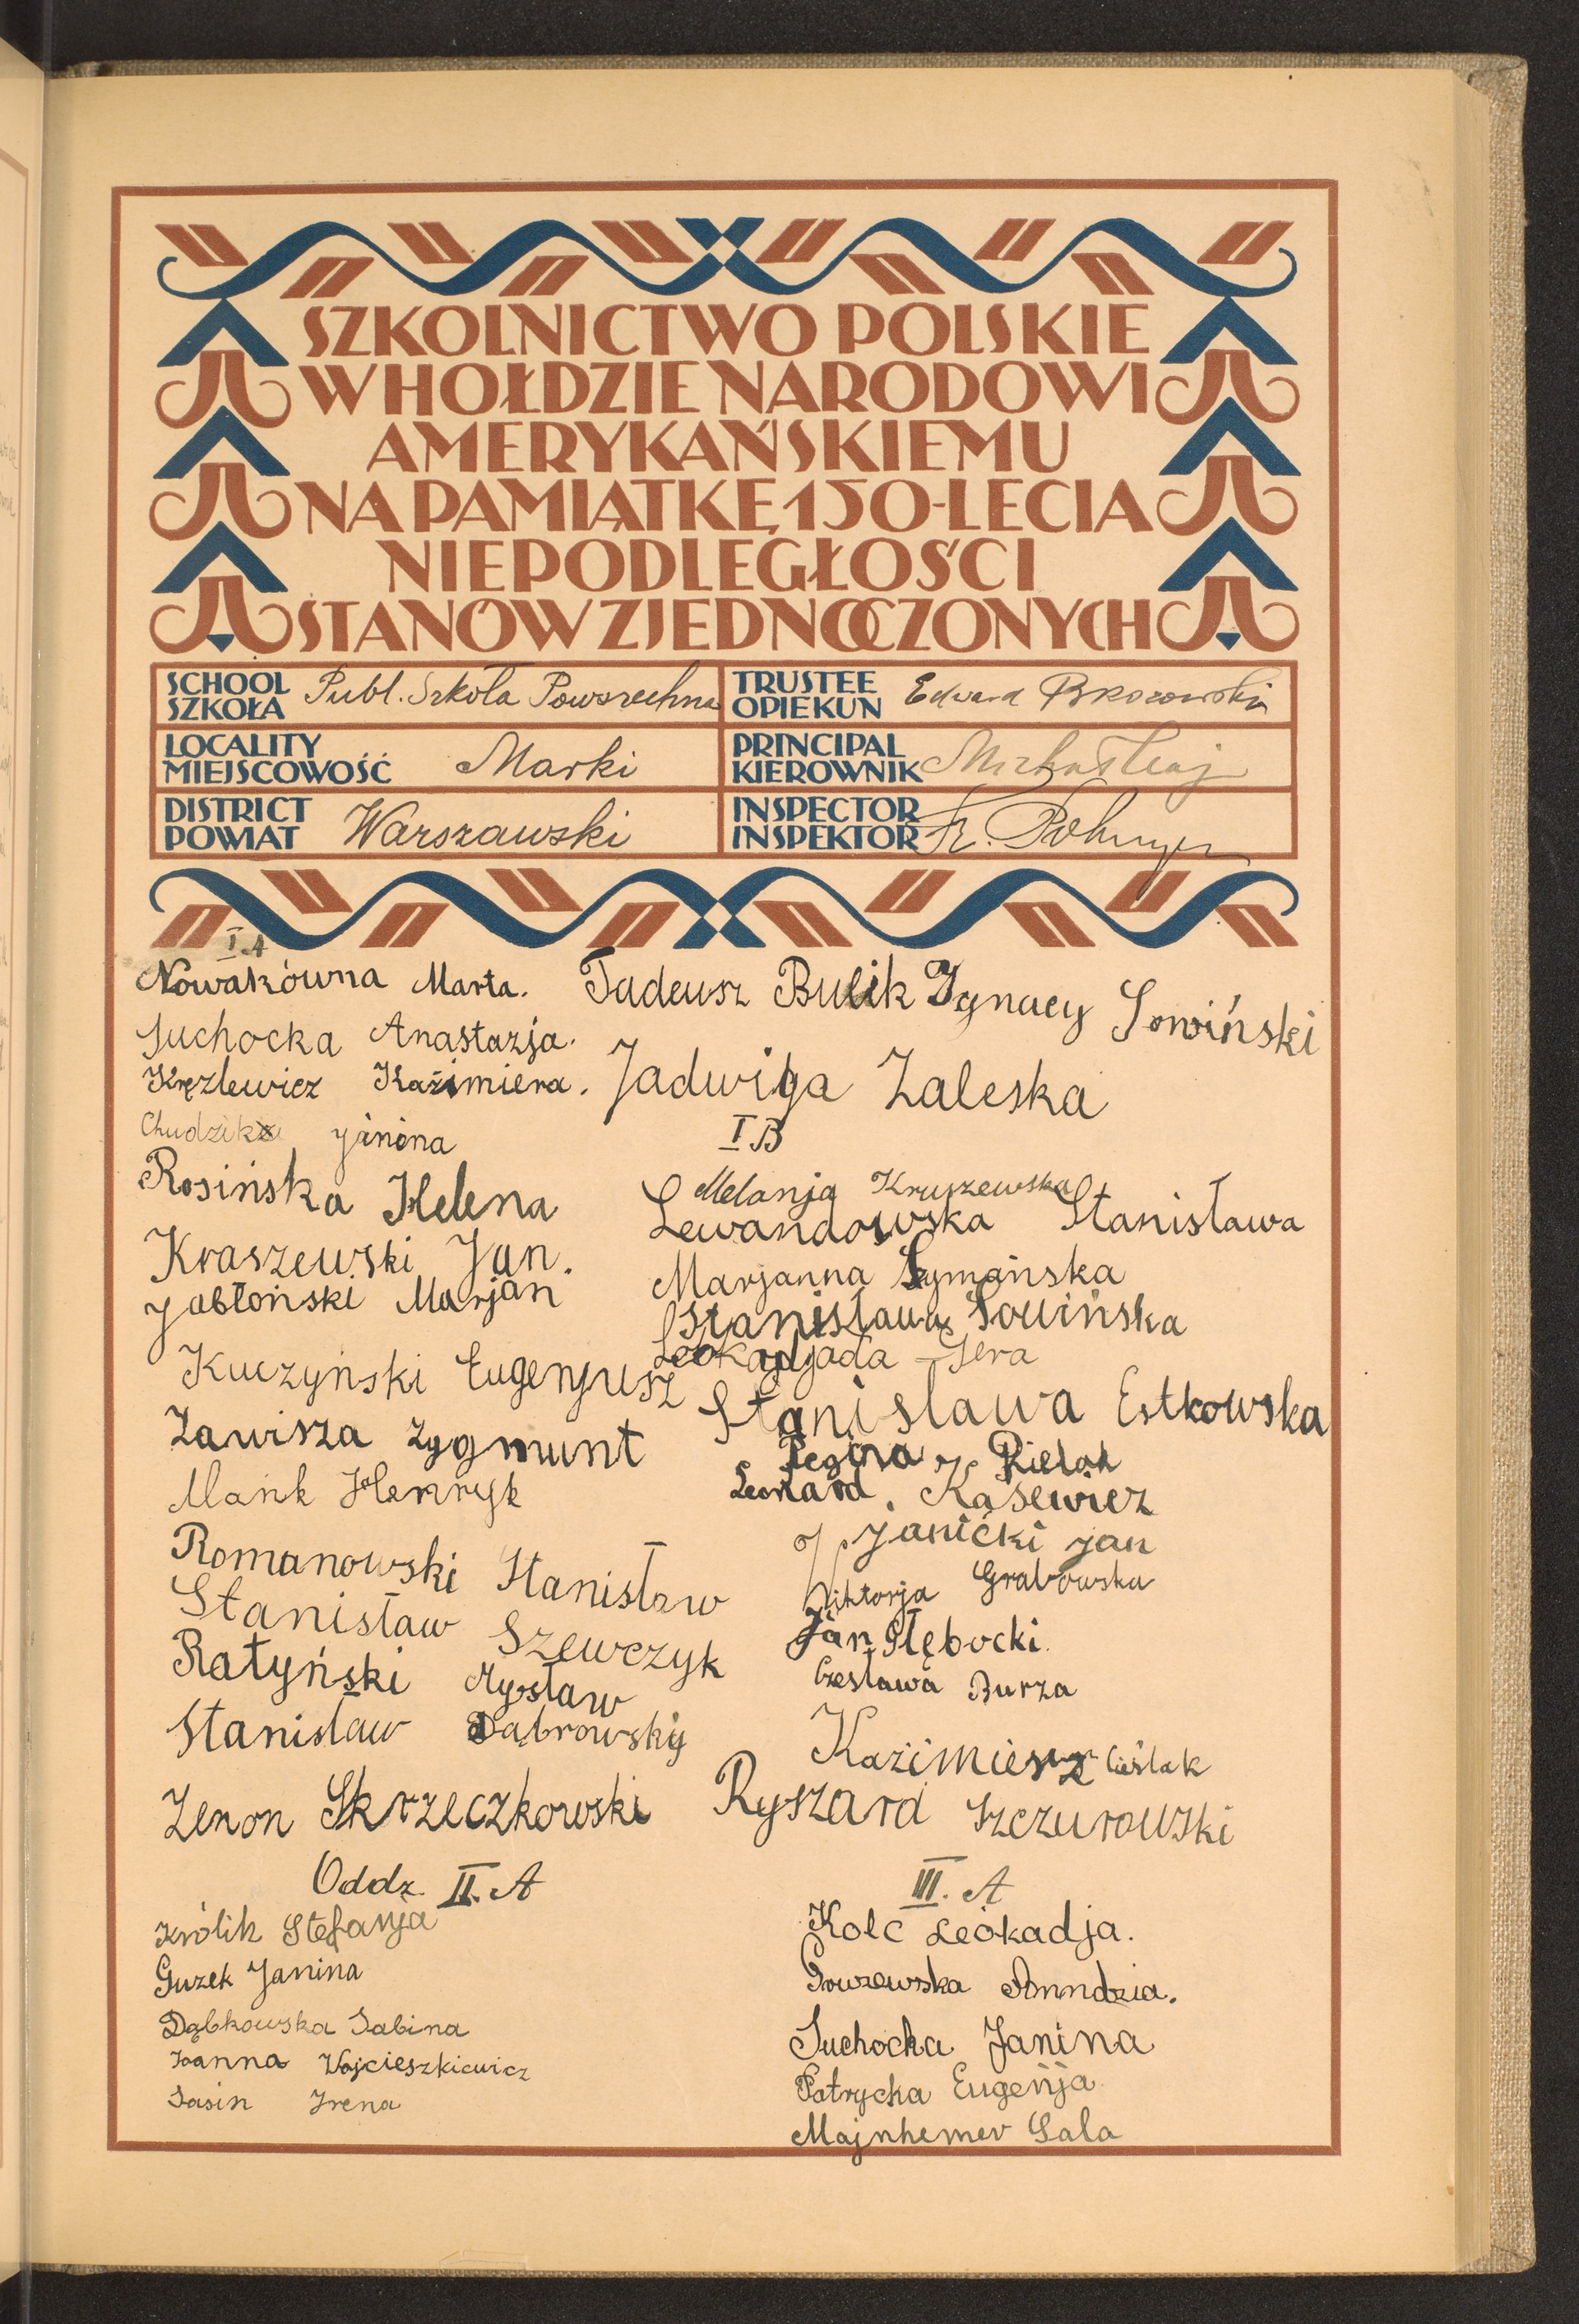 SZKOLNICTWO POLSKIE
W HOŁDZIE NARODOWI
AMERYKAŃSKIEMU
NA PAMIĄTKĘ 150-LECIA
NIEPODLEGŁOŚCI
STANÓW ZJEDNOCZONYCH
SCHOOL
SZKOŁA
Publ. Szkoła Powszechna
TRUSTEE
OPIEKUN
Edward Brzozowski
LOCALITY
MIEJSCOWOŚĆ
Marki
PRINCIPAL
KIEROWNIK
DISTRICT
POWIAT
Warszawski
INSPECTOR
INSPEKTOR
Fr.
I A
Nowakówna Marta.
Suchocka Anastazja.
Kręzlewicz Kazimiera.
Chudzik Janina
Rosińska Helena
Kraszewski Jan.
Jabłoński Marjan
Kuczyński Eugenjusz
Zawisza Zygmunt
Mank Henryk
Romanowski Stanisław
Stanisław Szewczyk
Ratyński
Stanisław Dąbrowski
Zenon Skrzeczkowski
Tadeusz Bulik Ignacy Sowiński
Jadwiga Zaleska
I B
Melanja Kruszewska
Lewandowska Stanisława
Marjanna Symańska
Stanisława Sowińska
Leokadjada Gera
Stanisława Estkowska
Regina Rielak
Leonard. Kasewicz
Janićki Jan
Wiktorja Grabowska
Jan Głębocki.
Czesława Burza
Kazimiesz Cieślak
Ryszard Szczurowski
Oddz. II. A
Królik Stefanja
Guzek Janina
Dąbkowska Sabina
Joanna Wojcieszkiewicz
Sasin Irena
III. A
Kolc Leokadja.
Anndzia.
Suchocka Janina
Patrycka Eugenja
Majnhemer Sala